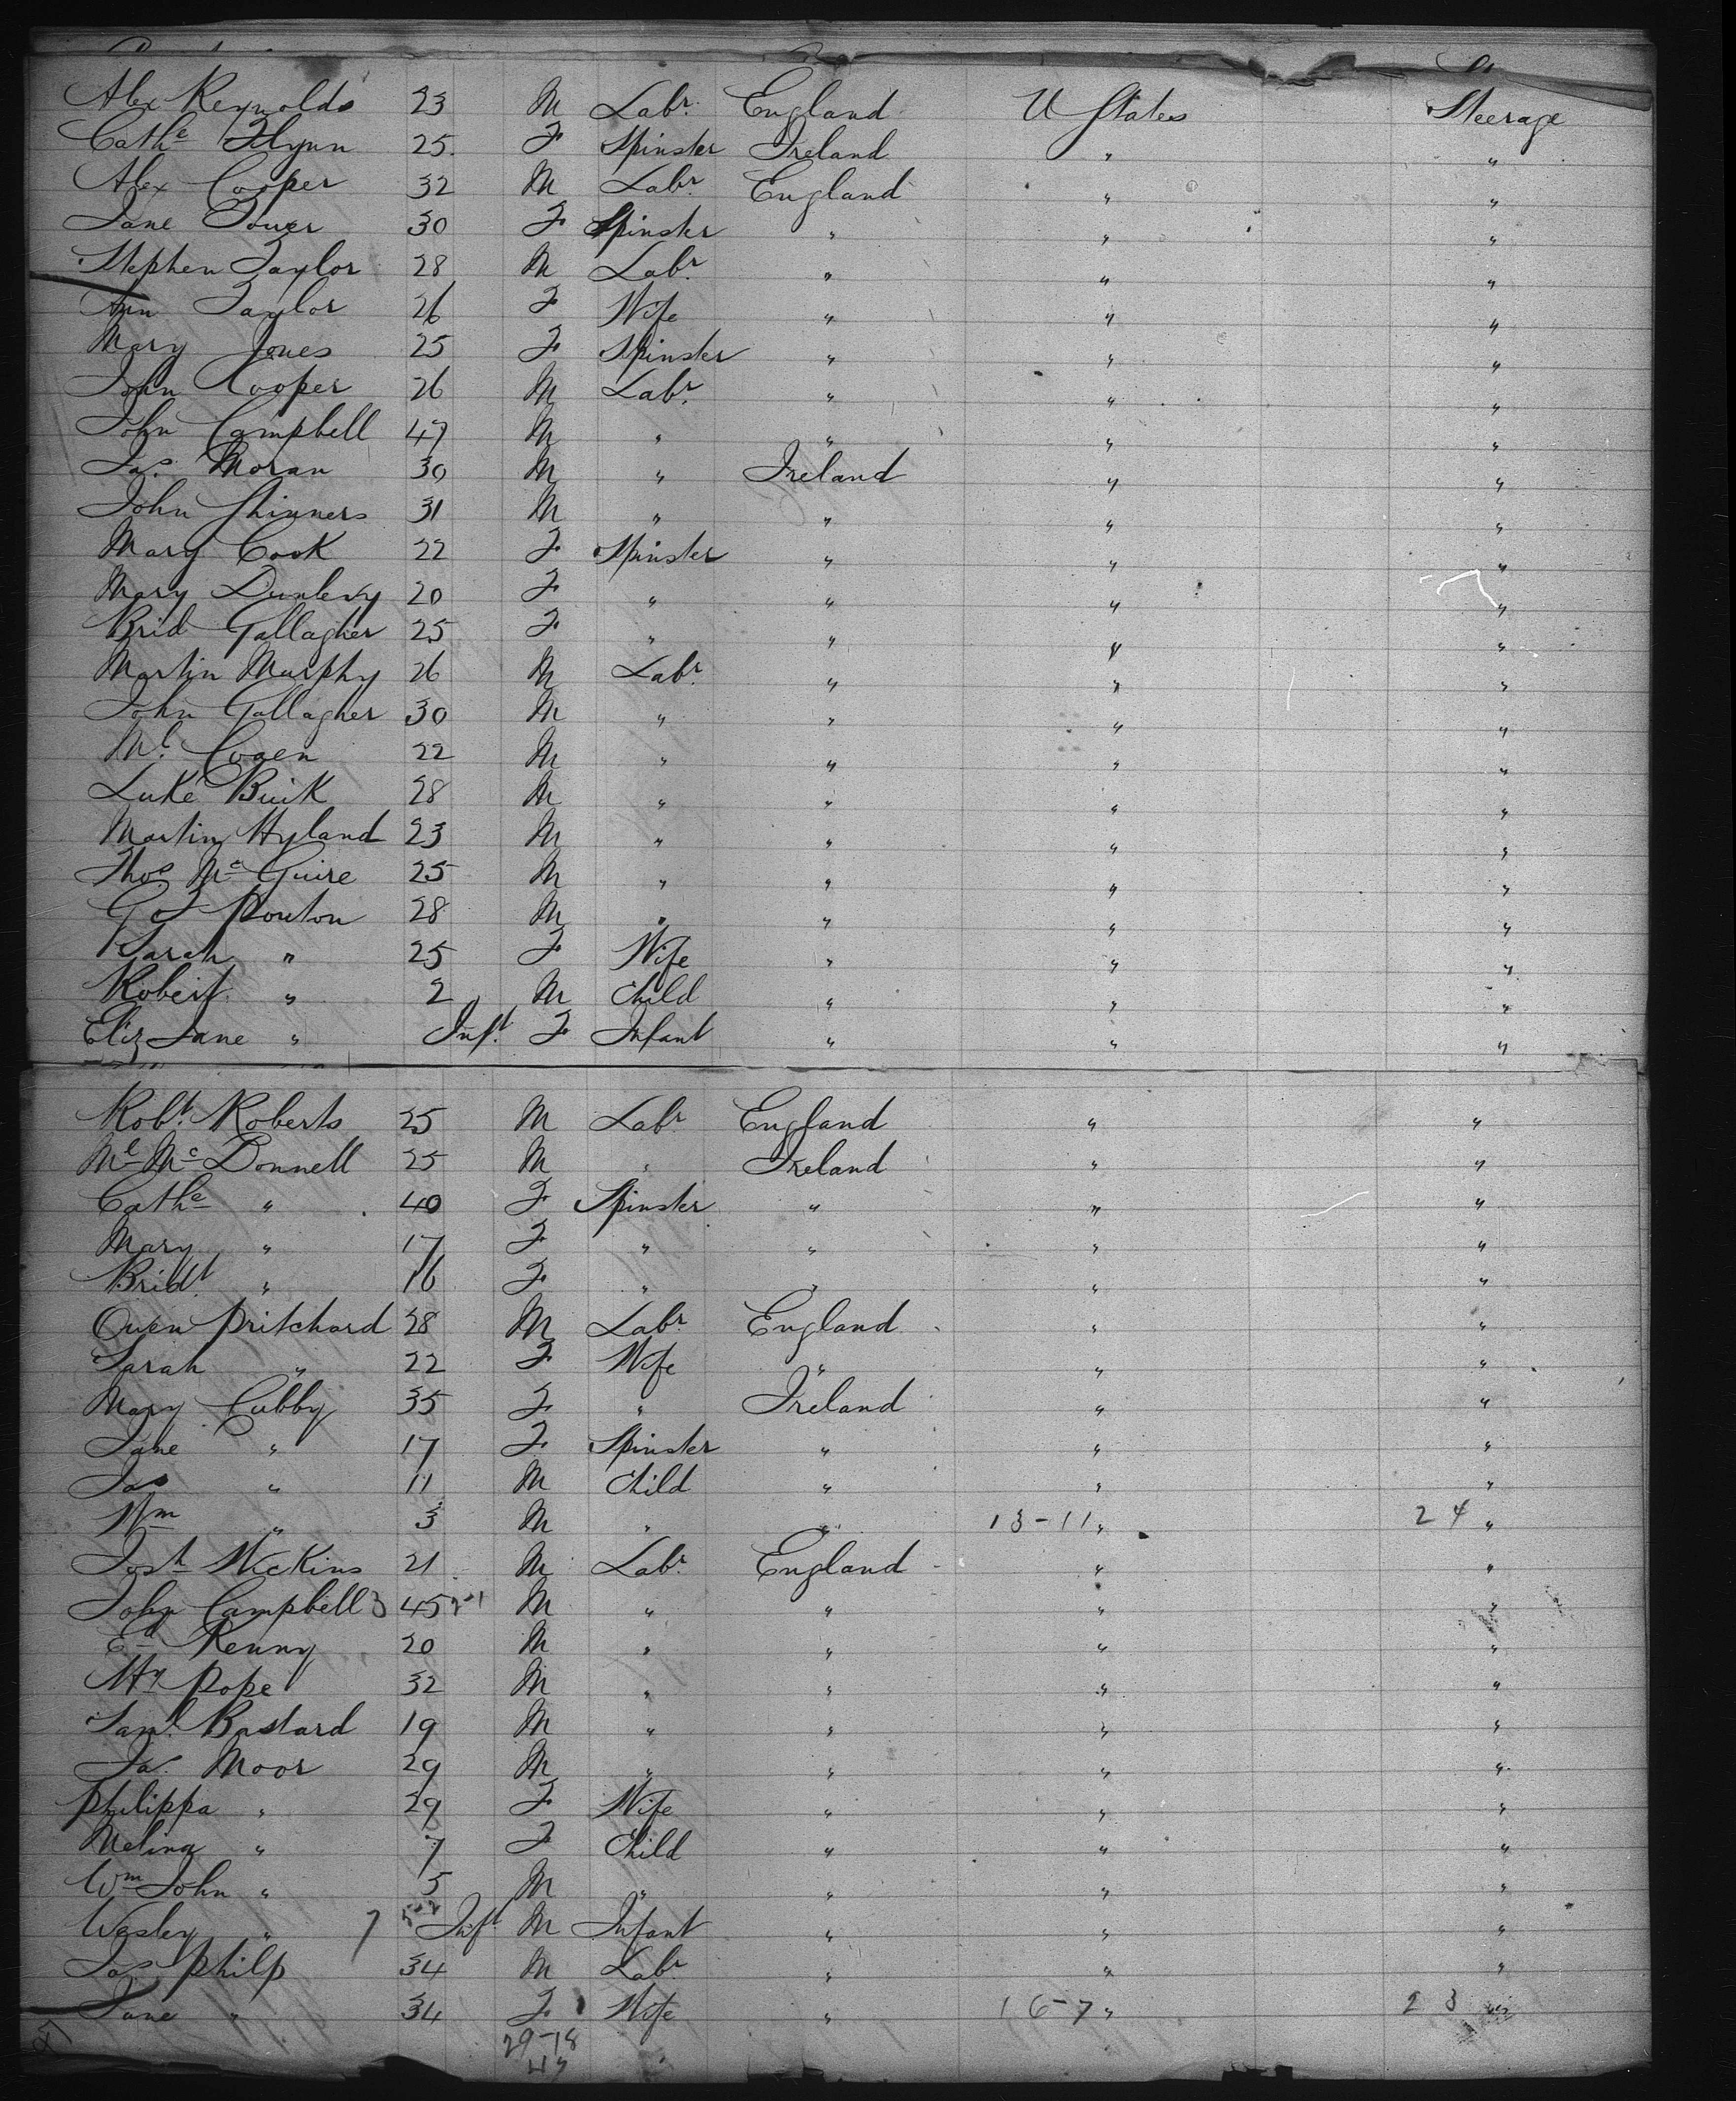 Alex Reynolds 23 M Labr. England U States Steerage
Cathe Flynn 25. F Spinster Ireland " "
Alex Cooper 32 M Labr. England " "
Jane Tower 30 F Spinster " " "
Stephen Taylor 28 M Labr. " " "
Ann Taylor 26 F Wife " " "
Mary Jones 25 F Spinster " " "
John Cooper 26 M Labr. " " "
John Campbell 47 M " " " "
Jas. Moran 30 M " Ireland " "
John Skinners 31 M " " " "
Mary Cook 22 F Spinster " " "
Mary Dunlevy 20 F " " " "
Brid Gallagher 25 F " " " "
Martin Murphy 26 M Labr. " " "
John Gallagher 30 M " " " "
Ml. Cogen 22 M " " " "
Luke Buik 28 M " " " "
Martin Hyland 23 M " " " "
Thos Mc Guire 25 M " " " "
Pouton 28 M " " " "
Sarah " 25 F Wife " " "
Robert " 2 M Child " " "
Eliz Jane " Inft. F Infant " " "
Robt. Roberts 25 M Labr England " "
Ml Mc Donnell 25 M " Ireland " "
Cathe " 40 F Spinster " " "
Mary " 17 F " " " "
Bridt. " 16 F " " " "
Owen Pritchard 28 M Labr. England " "
Sarah " 22 F Wife " " "
Mary Cubby 35 F " Ireland " "
Jane " 17 F Spinster " " "
Jas " 11 M Child " " "
Wm " 3 M " " 13-11 " 24 "
Josh 21 M Labr. England " "
John Campbell 3 45 2-1 M " " " "
Ed Kenny 20 M " " " "
Hy Pope 32 M " " " "
Saml. Bastard 19 M " " " "
Ja. Moor 29 M " " " "
Philippa " 29 F Wife " " "
Melina " 7 F Child " " "
Wm John " 5 M " " " "
Wesley " 7 5-2 Inft M Infant " " "
Jas. Philp 34 M Labr. " " "
Jane " 34 F Wife " 16-7 " 23 "
29-18
47